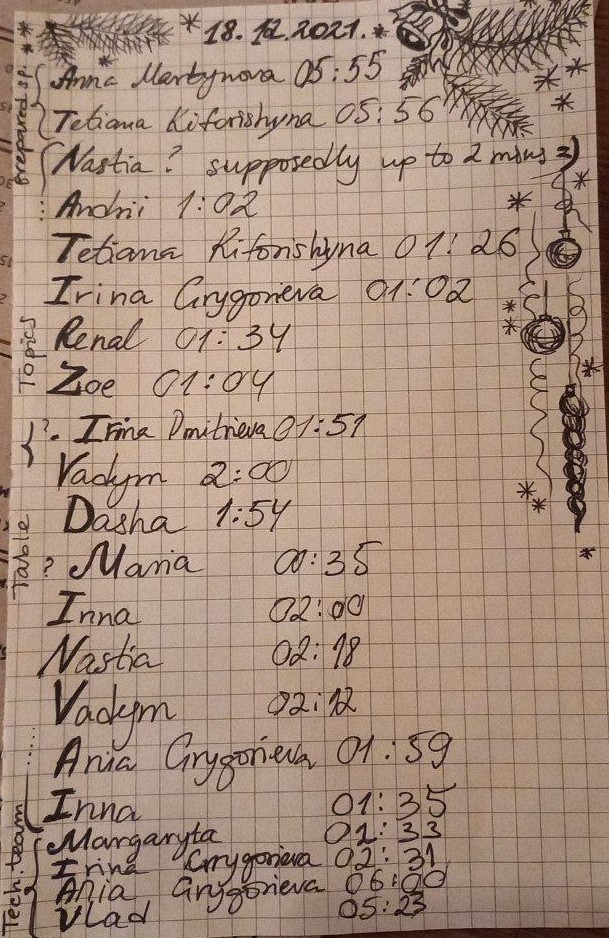 18.12.2021.
Prepared sp.
Anna Martynova 05:55
Tetiana Kiforishyna 05:56
Nastia ? supposedly up to 2 mins =)
Topics
Andrii 1:02
Tetiana Kiforishyna 01:26
Irina Grygorieva 01:02
Renal 01:34
Zoe 01:04
?. Irina Dmitrieva 01:51
Vadym 2:00
Table
Dasha 1:54
? Maria 00:35
Inna 02:00
Nastia 02:18
Vadym 02:12
Ania Grygorieva 01:59
Inna 01:35
Tech. team
Margaryta 01:33
Irina Grygorieva 02:31
Ania Grygorieva 06:00
Vlad 05:23